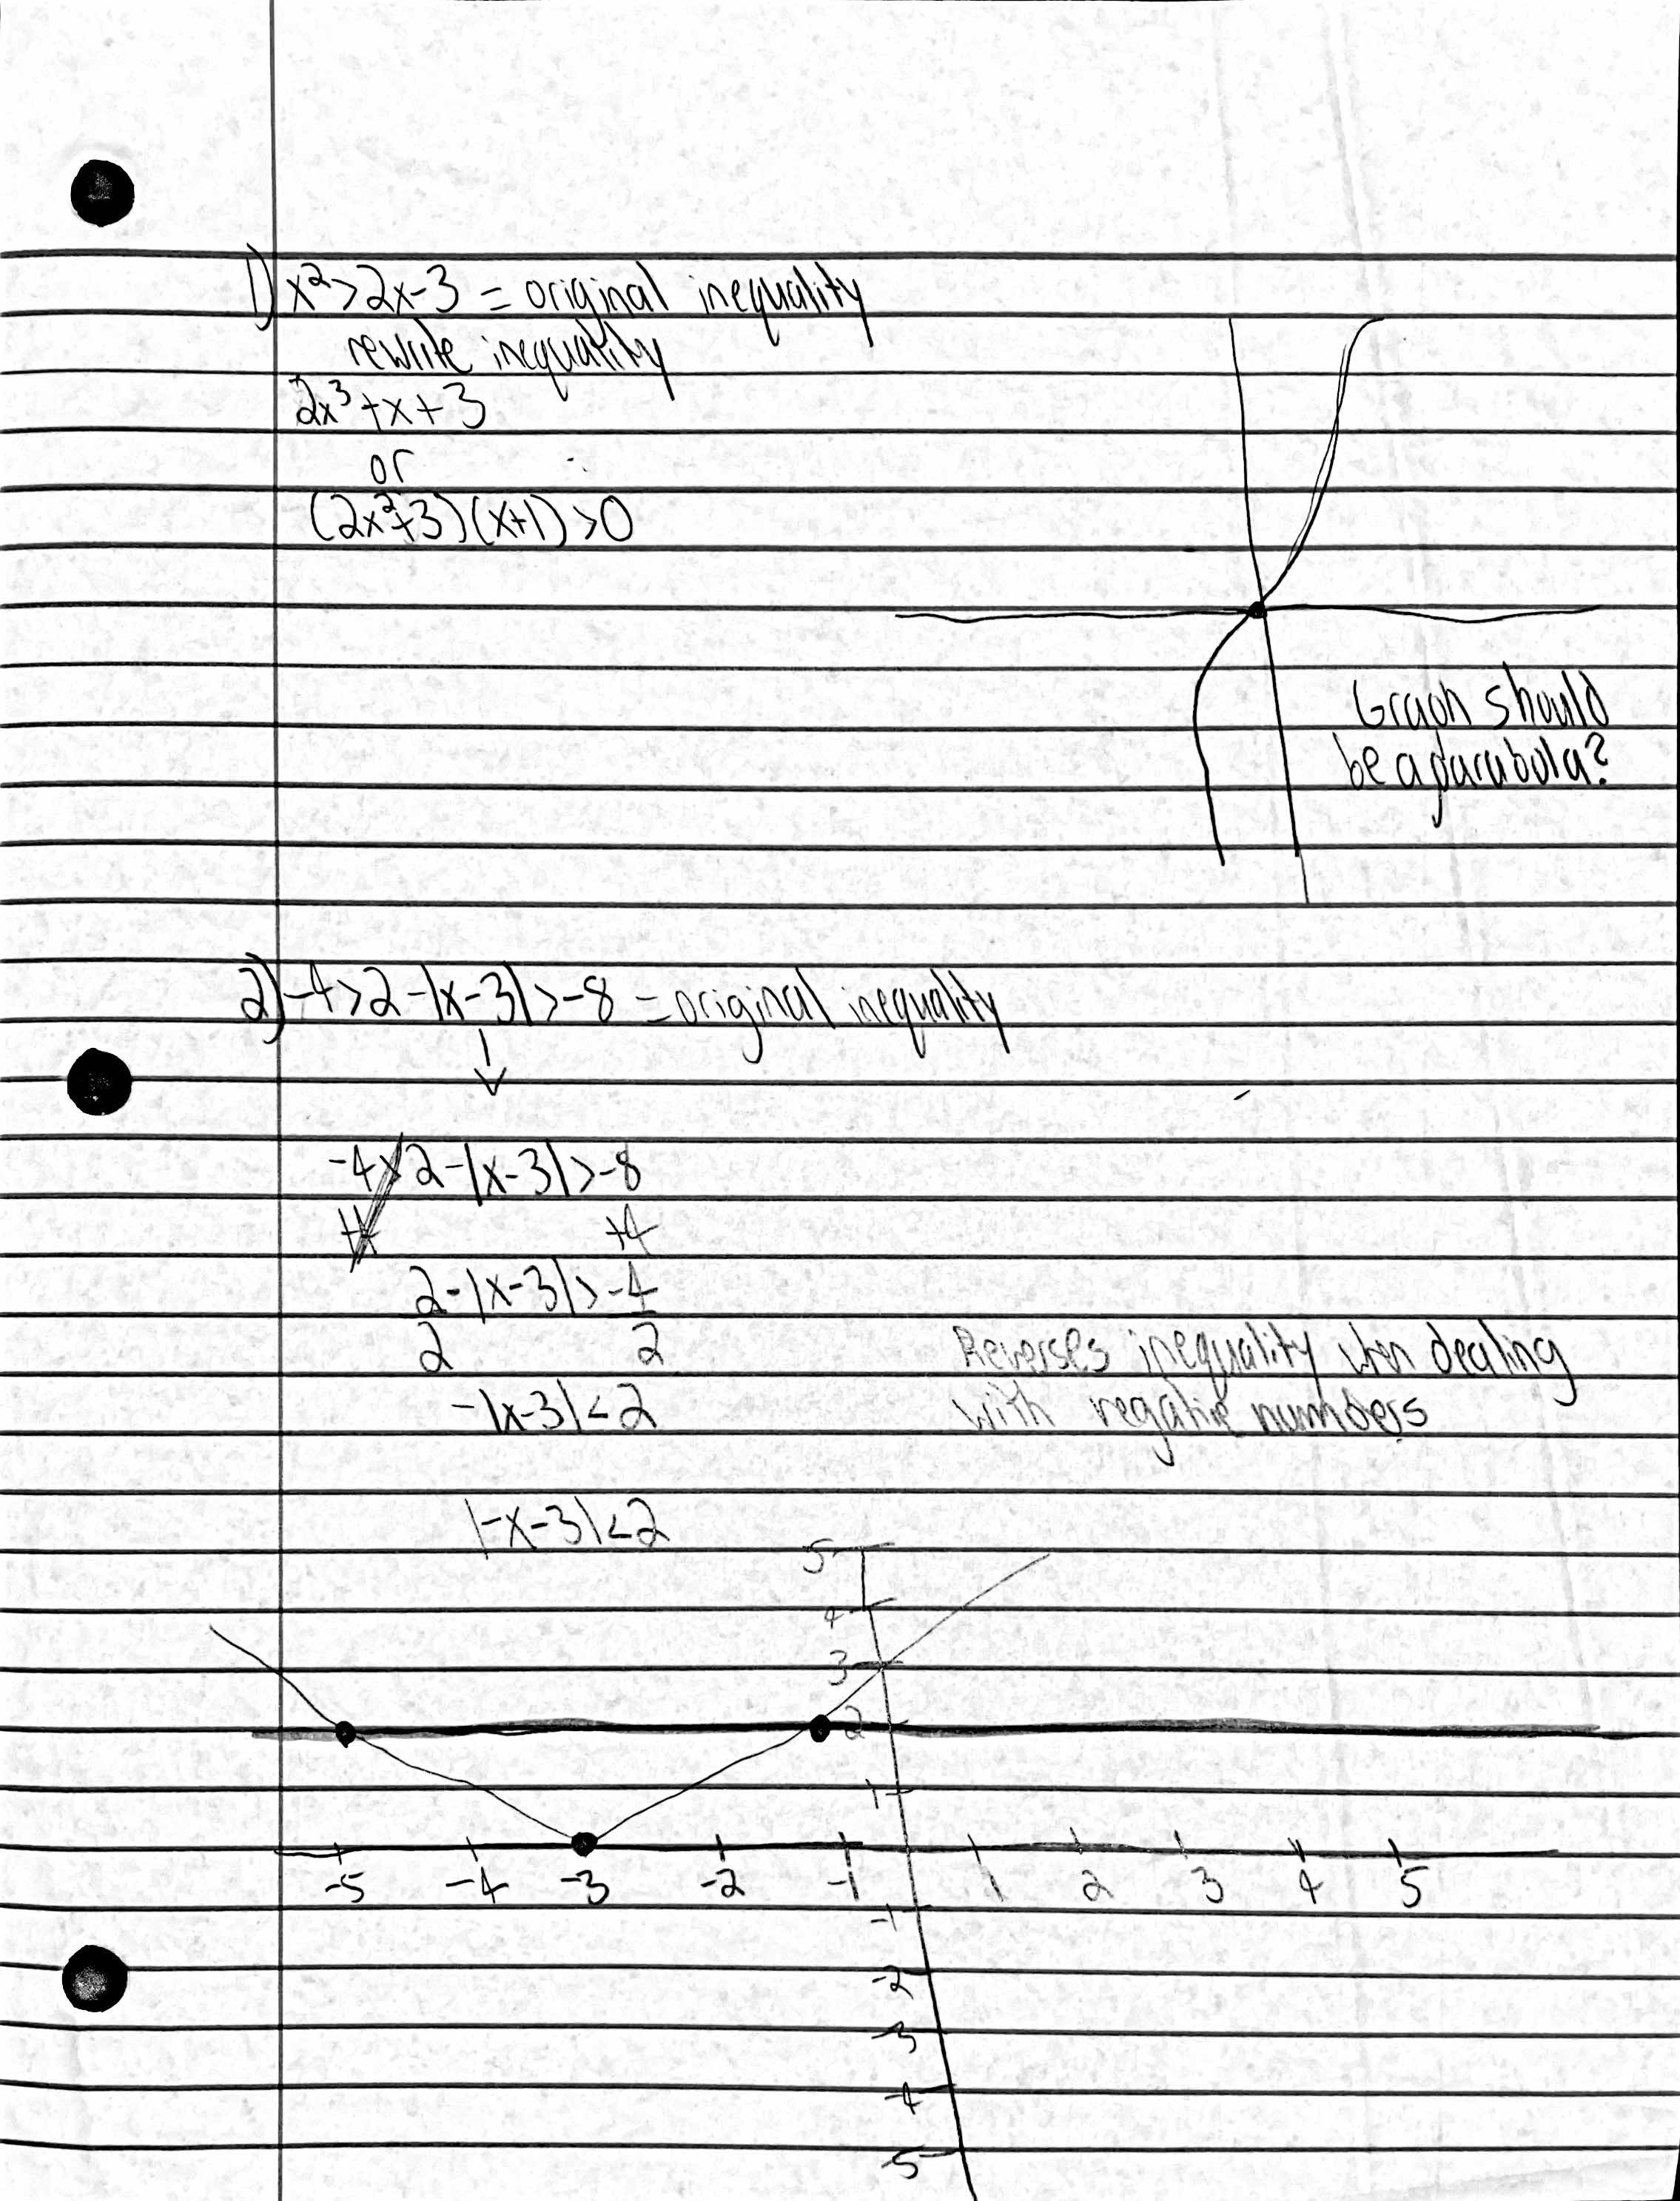 1) x²>2x-3 = original inequality
rewrite inequality
2x³+x+3
or
(2x²+3)(x+1)>0
Graph should
be a parabola?
2) -4>2-|x-3|>-8 = original inequality
↓
-4>2-|x-3|>-8
+4 +4
2-|x-3|>-4
2 2
Reverses inequality when dealing
-|x-3|<2
with negative numbers
|-x-3|<2
5
4
3
2
1
-5 -4 -3 -2 -1 1 2 3 4 5
-1
-2
-3
-4
-5